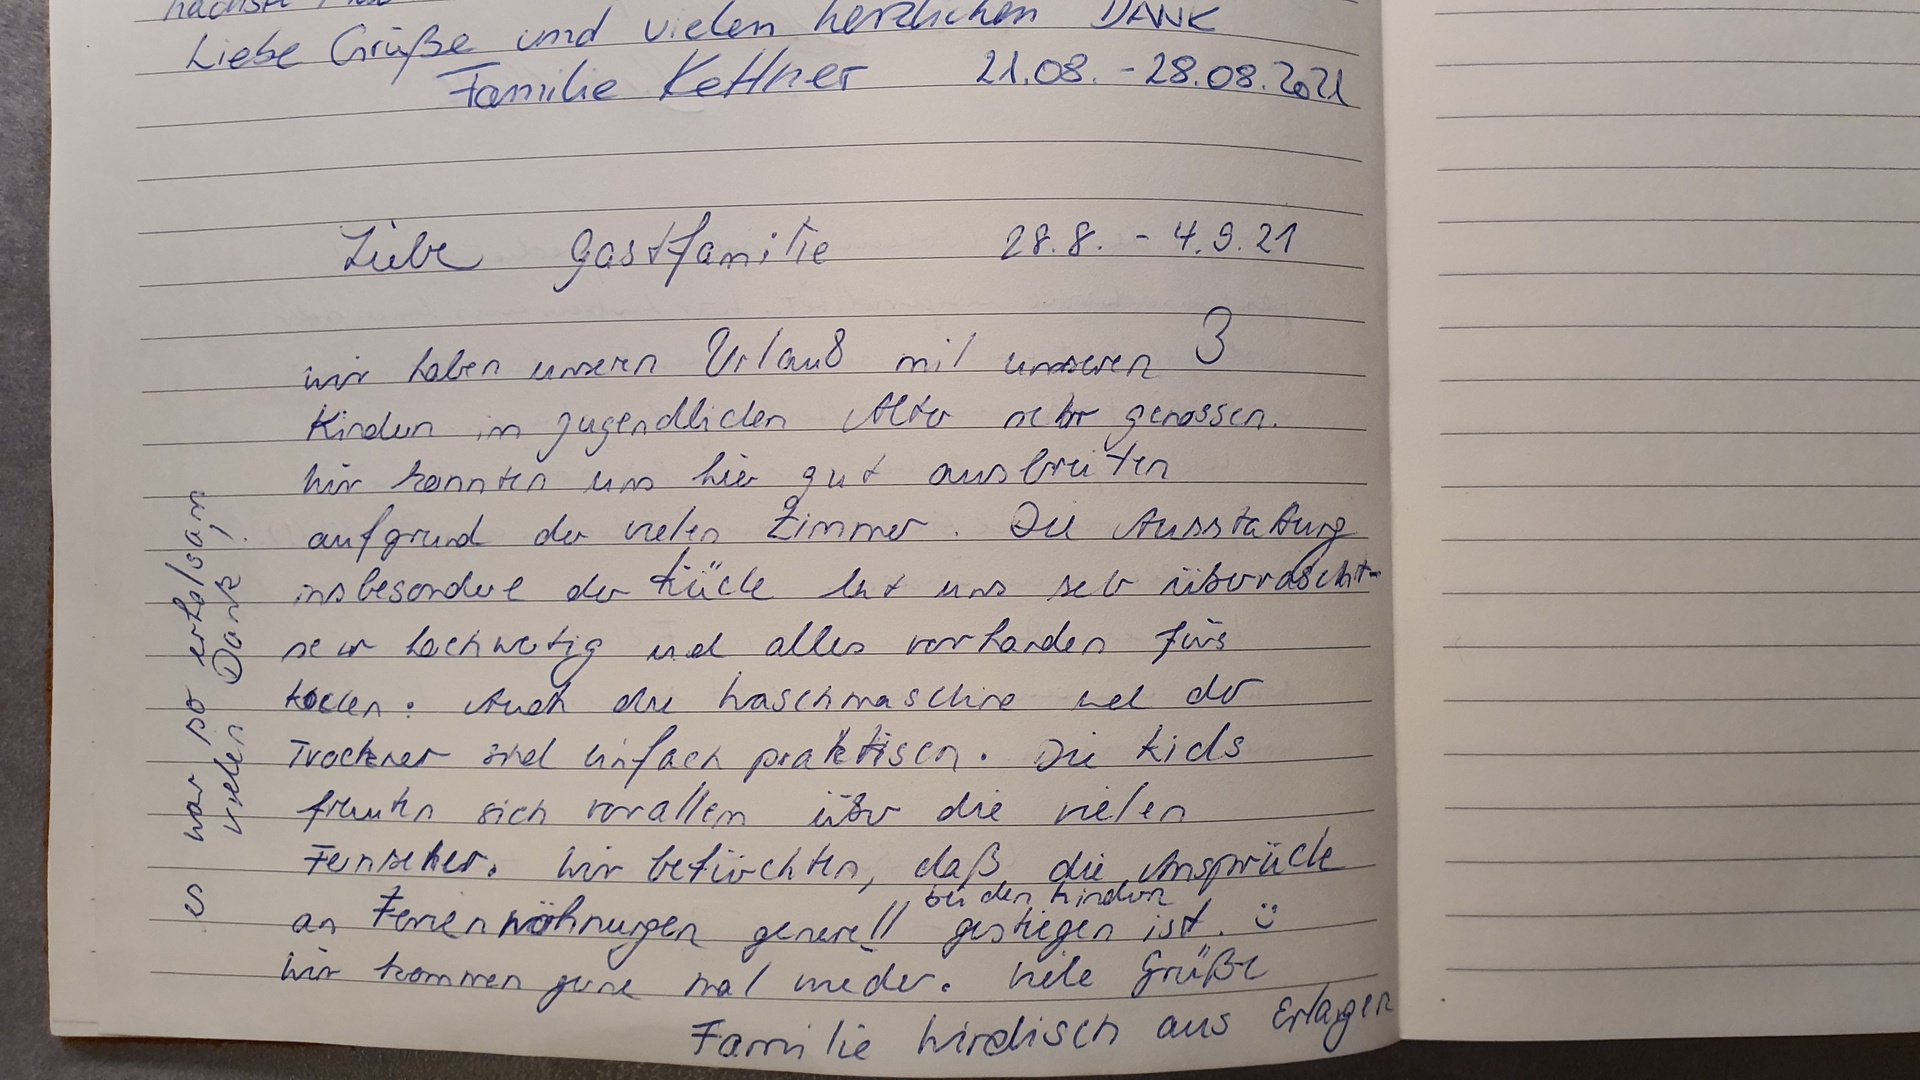 Liebe Grüße und vielen herzlichen DANK
Familie Kettner 21.08. - 28.08.2021
Liebe Gastfamilie 28.8. - 4.9.21
wir haben unseren Urlaub mit unseren 3
Kindern im jugendlichen Alter sehr genossen.
Wir konnten uns hier gut ausbreiten
aufgrund der vielen Zimmer. Die Ausstattung
insbesondere der Küche hat uns sehr überrascht -
sehr hochwertig und alles vorhanden fürs
Kochen. Auch die Waschmaschine und der
Trockner sind einfach praktisch. Die Kids
freuten sich vor allem über die vielen
Fernseher. Wir befürchten, daß die Ansprüche
bei den Kindern
an Ferienwohnungen generell gestiegen ist. ☺
Wir kommen gerne mal wieder. Viele Grüße
Familie aus Erlangen
es war so erholsam,
vielen Dank!